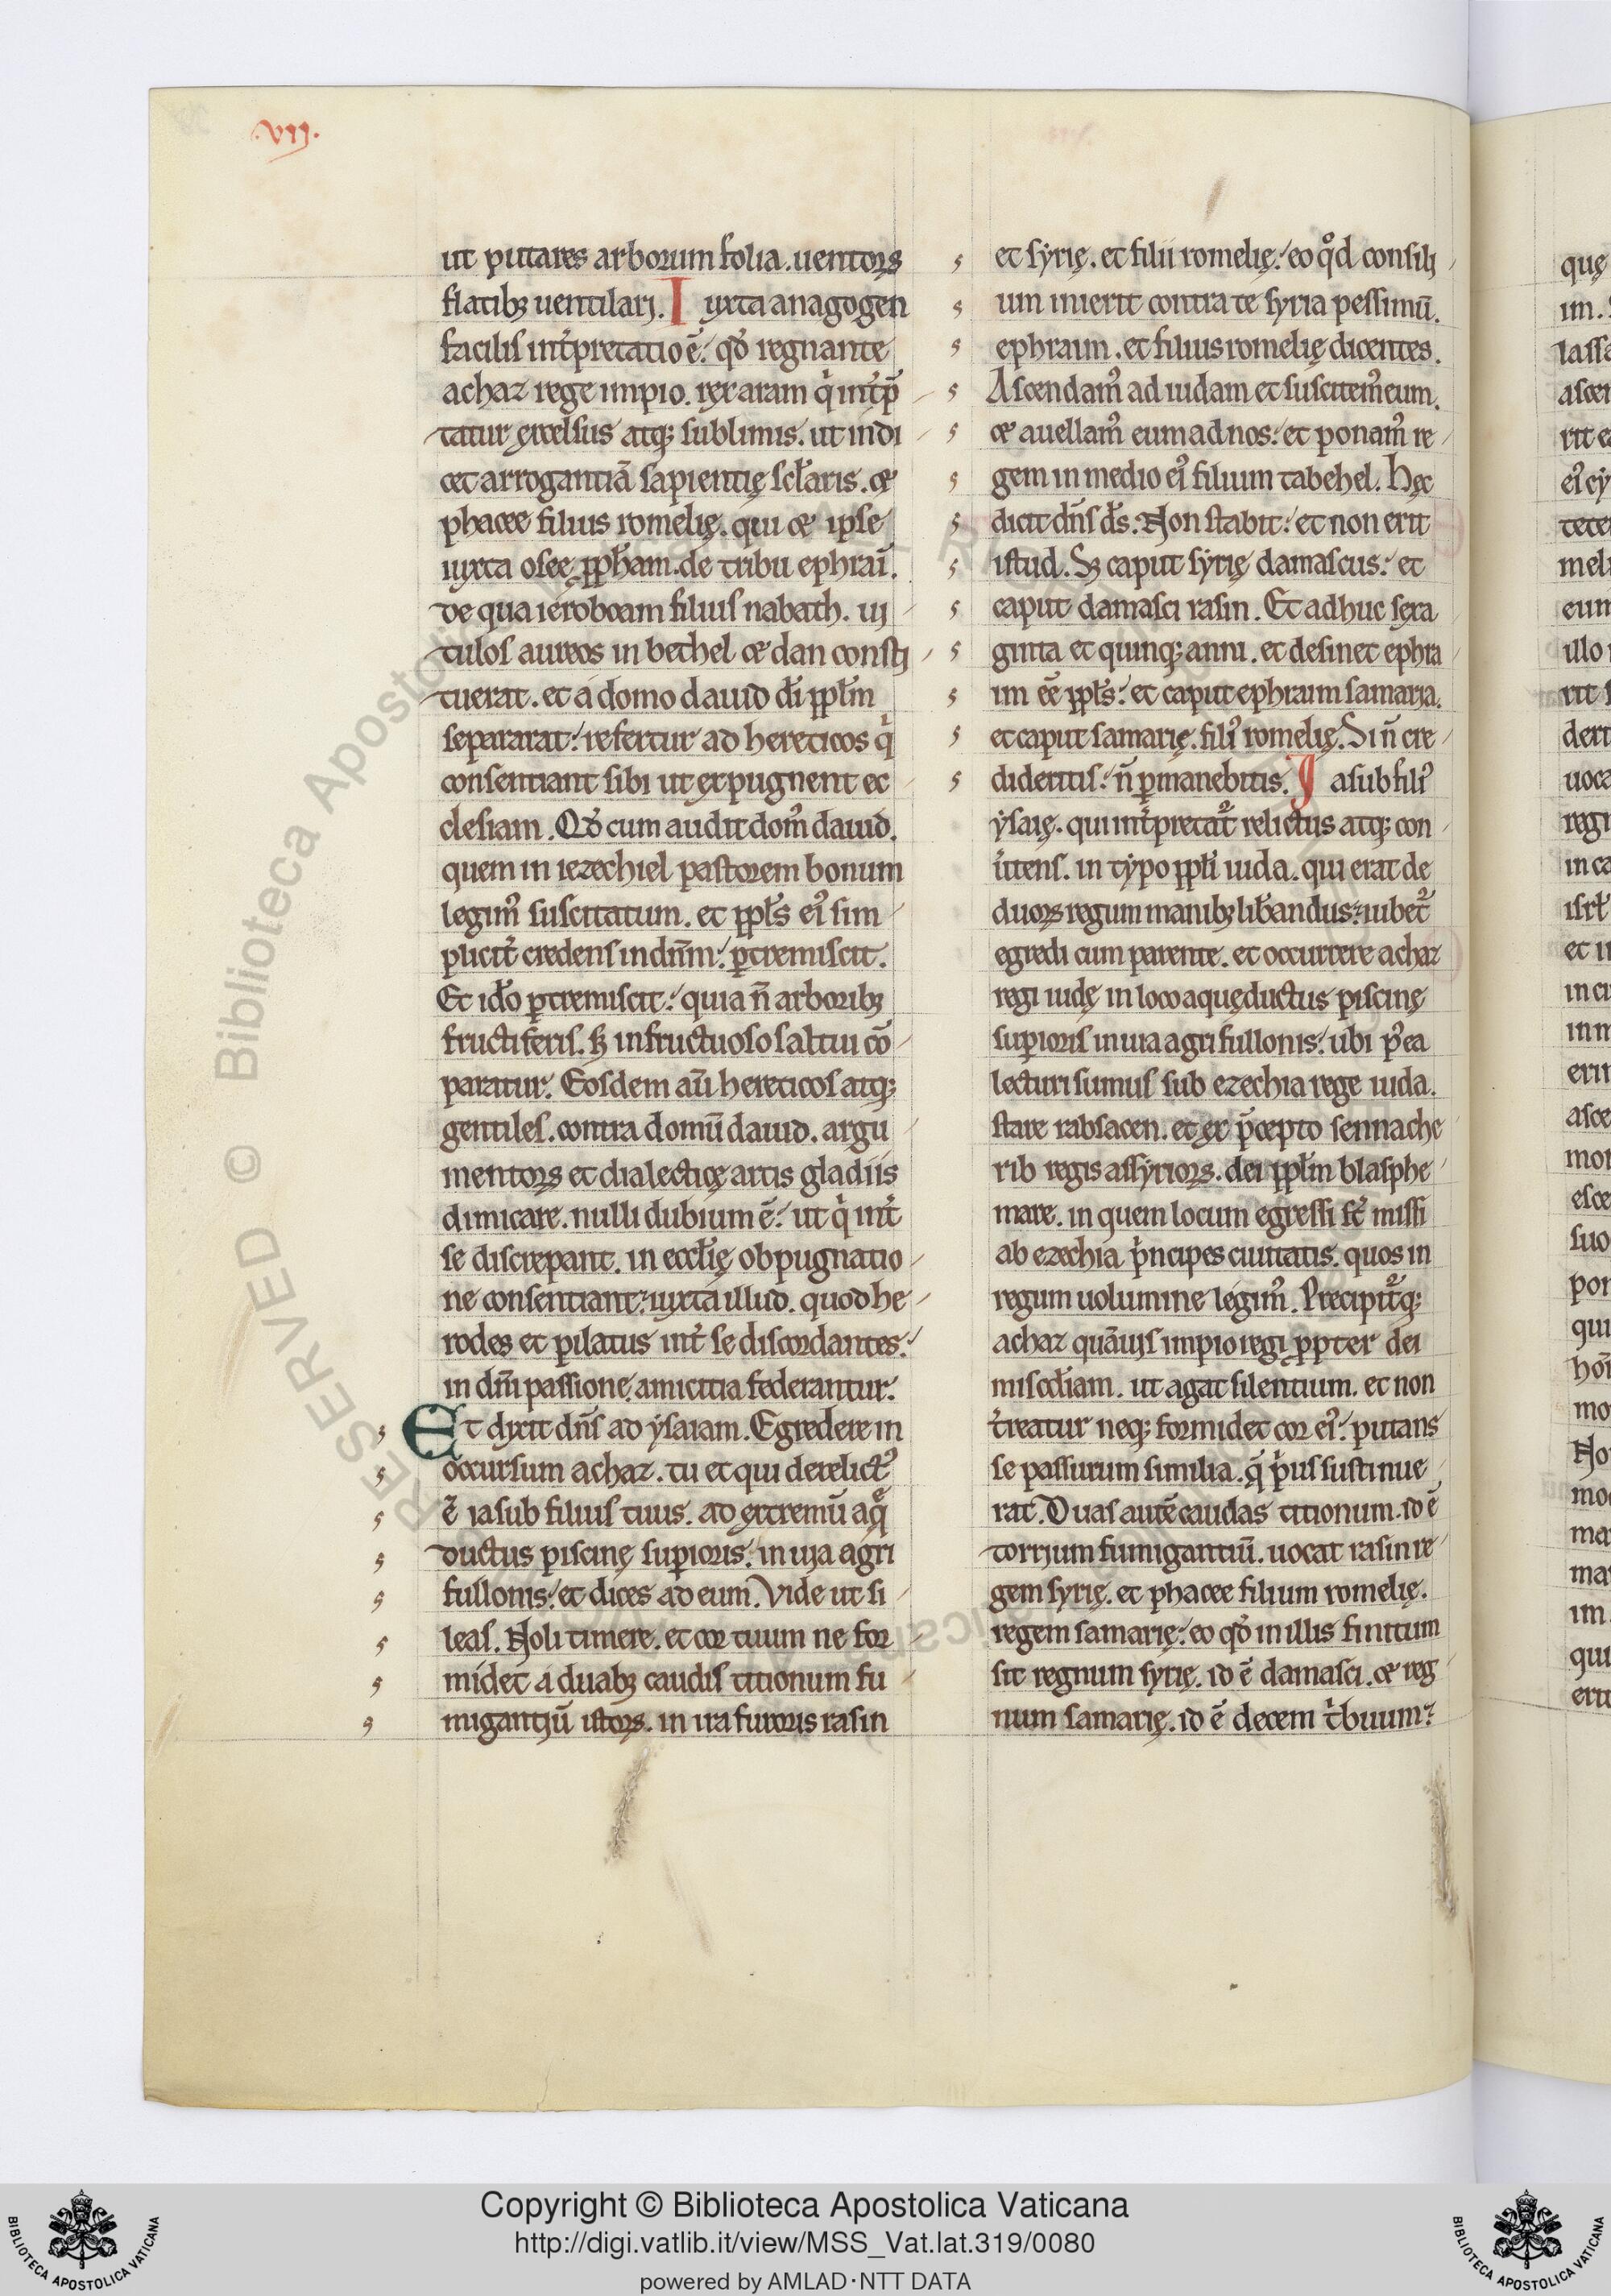 .vıȷ.
ut putares arborum folia. uentoꝝ
flatibꝫ uentilari. Iuxta anagogen
facilis int̉pretatio ē. qđ regnante
achaz rege impio. rex aram q̇ int̉p̄
tatur excelsus atqꝫ sublimis. ut indi
cet arrogantiā sapientię sc̄laris. ⁊
phacee filius romelię. qui ⁊ ipse
iuxta osee ꝓpħam. de tribu ephraī.
de qua ieroboam filius nabath. ui
tulos aureos in bethel ⁊ dan consti
tuerat. et a domo dauid dī ppłm
separarat. refertur ad hereticos q̇
consentiant sibi ut expugnent ec
clesiam. Qđ cum audit domꝰ dauid.
quem in iezechiel pastorem bonum
legimꝰ suscitatum. et ppłs eiꝰ sim
plicit̉ credens in dn̄m. ꝑtremiscit.
Et iđo ꝑtremiscit. quia n̄ arboribꝫ
fructiferis. sꝫ infructuoso saltui cō
paratur. Eosdem aū hereticos atqꝫ
gentiles. contra domū dauid. argu
mentoꝝ et dialecticę artis gladiis
dimicare. nulli dubium ē. ut q̇ int̉
se discrepant. in eccłię obpugnatio
ne consentiant. iuxta illud. quod he
rodes et pilatus int̉ se discordantes.
in dn̄i passione amicitia federantur.
Et dixit dn̄s ad ẏsaiam. Egredere in
occursum achaz. tu et qui derelictꝰ
ē iasub filius tuus. ad extremū aq̄
ductus piscinę suꝑioris. in uia agri
fullonis. et dices ad eum. Vide ut si
leas. Noli timere. et cor tuum ne for
midet a duabꝫ caudis titionum fu
migantiū istoꝝ. in ira furoris rasin
et sẏrię. et filii romelię. eo qͦd consili
um inierit contra te syria pessimū.
ephraim. et filius romelię dicentes.
Ascendamꝰ ad iudam et suscitemꝰ eum.
⁊ auellamꝰ eum ad nos. et ponamꝰ re
gem in medio eiꝰ filium tabehel. Hęc
dicit dn̄s ds̄. Non stabit. et non erit
istud. Sꝫ caput sẏrię damascus. et
caput damasci rasin. Et adhuc sexa
ginta et quinqꝫ anni. et desinet ephra
im eē ppłs. et caput ephraim samaria.
et caput samarię. filiꝰ romelię. Si n̄ cre
dideritis. n̄ ꝑmanebitis. Iasub filiꝰ
ẏsaię. qui int̉pretat᷑ relictus atqꝫ con
u̇tens. in tẏpo ppłi iuda. qui erat de
duoꝝ regum manibꝫ lib̉andus. iubet᷑
egredi cum parente. et occurrere achaz
regi iudę in loco aquęductus piscinę
suꝑioris in uia agri fullonis. ubi p̄ea
lecturi sumus sub ezechia rege iuda.
stare rabsacen. et ex p̄cepto sennache
rib regis assyrioꝝ. dei ppłm blasphe
mare. in quem locum egressi st̄ missi
ab ezechia pͥncipes ciuitatis. quos in
regum uolumine legimꝰ. Precipit᷑qꝫ
achaz quāuis impio regi ꝓpter dei
mis̉cđiam. ut agat silentium. et non
t̉reatur neqꝫ formidet cor eiꝰ. putans
se passurum similia. q̄ pͥus sustinue
rat. Duas autē caudas titionum. id ē
torrium fumigantiū. uocat rasin re
gem syrię. et phacee filium romelię.
regem samarię. eo qđ in illis finitum
sit regnum syrię. id ē damasci. ⁊ reg
num samarię. id ē decem tͥbuum.
Copyright © Biblioteca Apostolica Vaticana
http://digi.vatlib.it/view/MSS_Vat.lat.319/0080
powered by AMLAD·NTT DATA
BIBLIOTECA APOSTOLICA VATICANA
BIBLIOTECA APOSTOLICA VATICANA